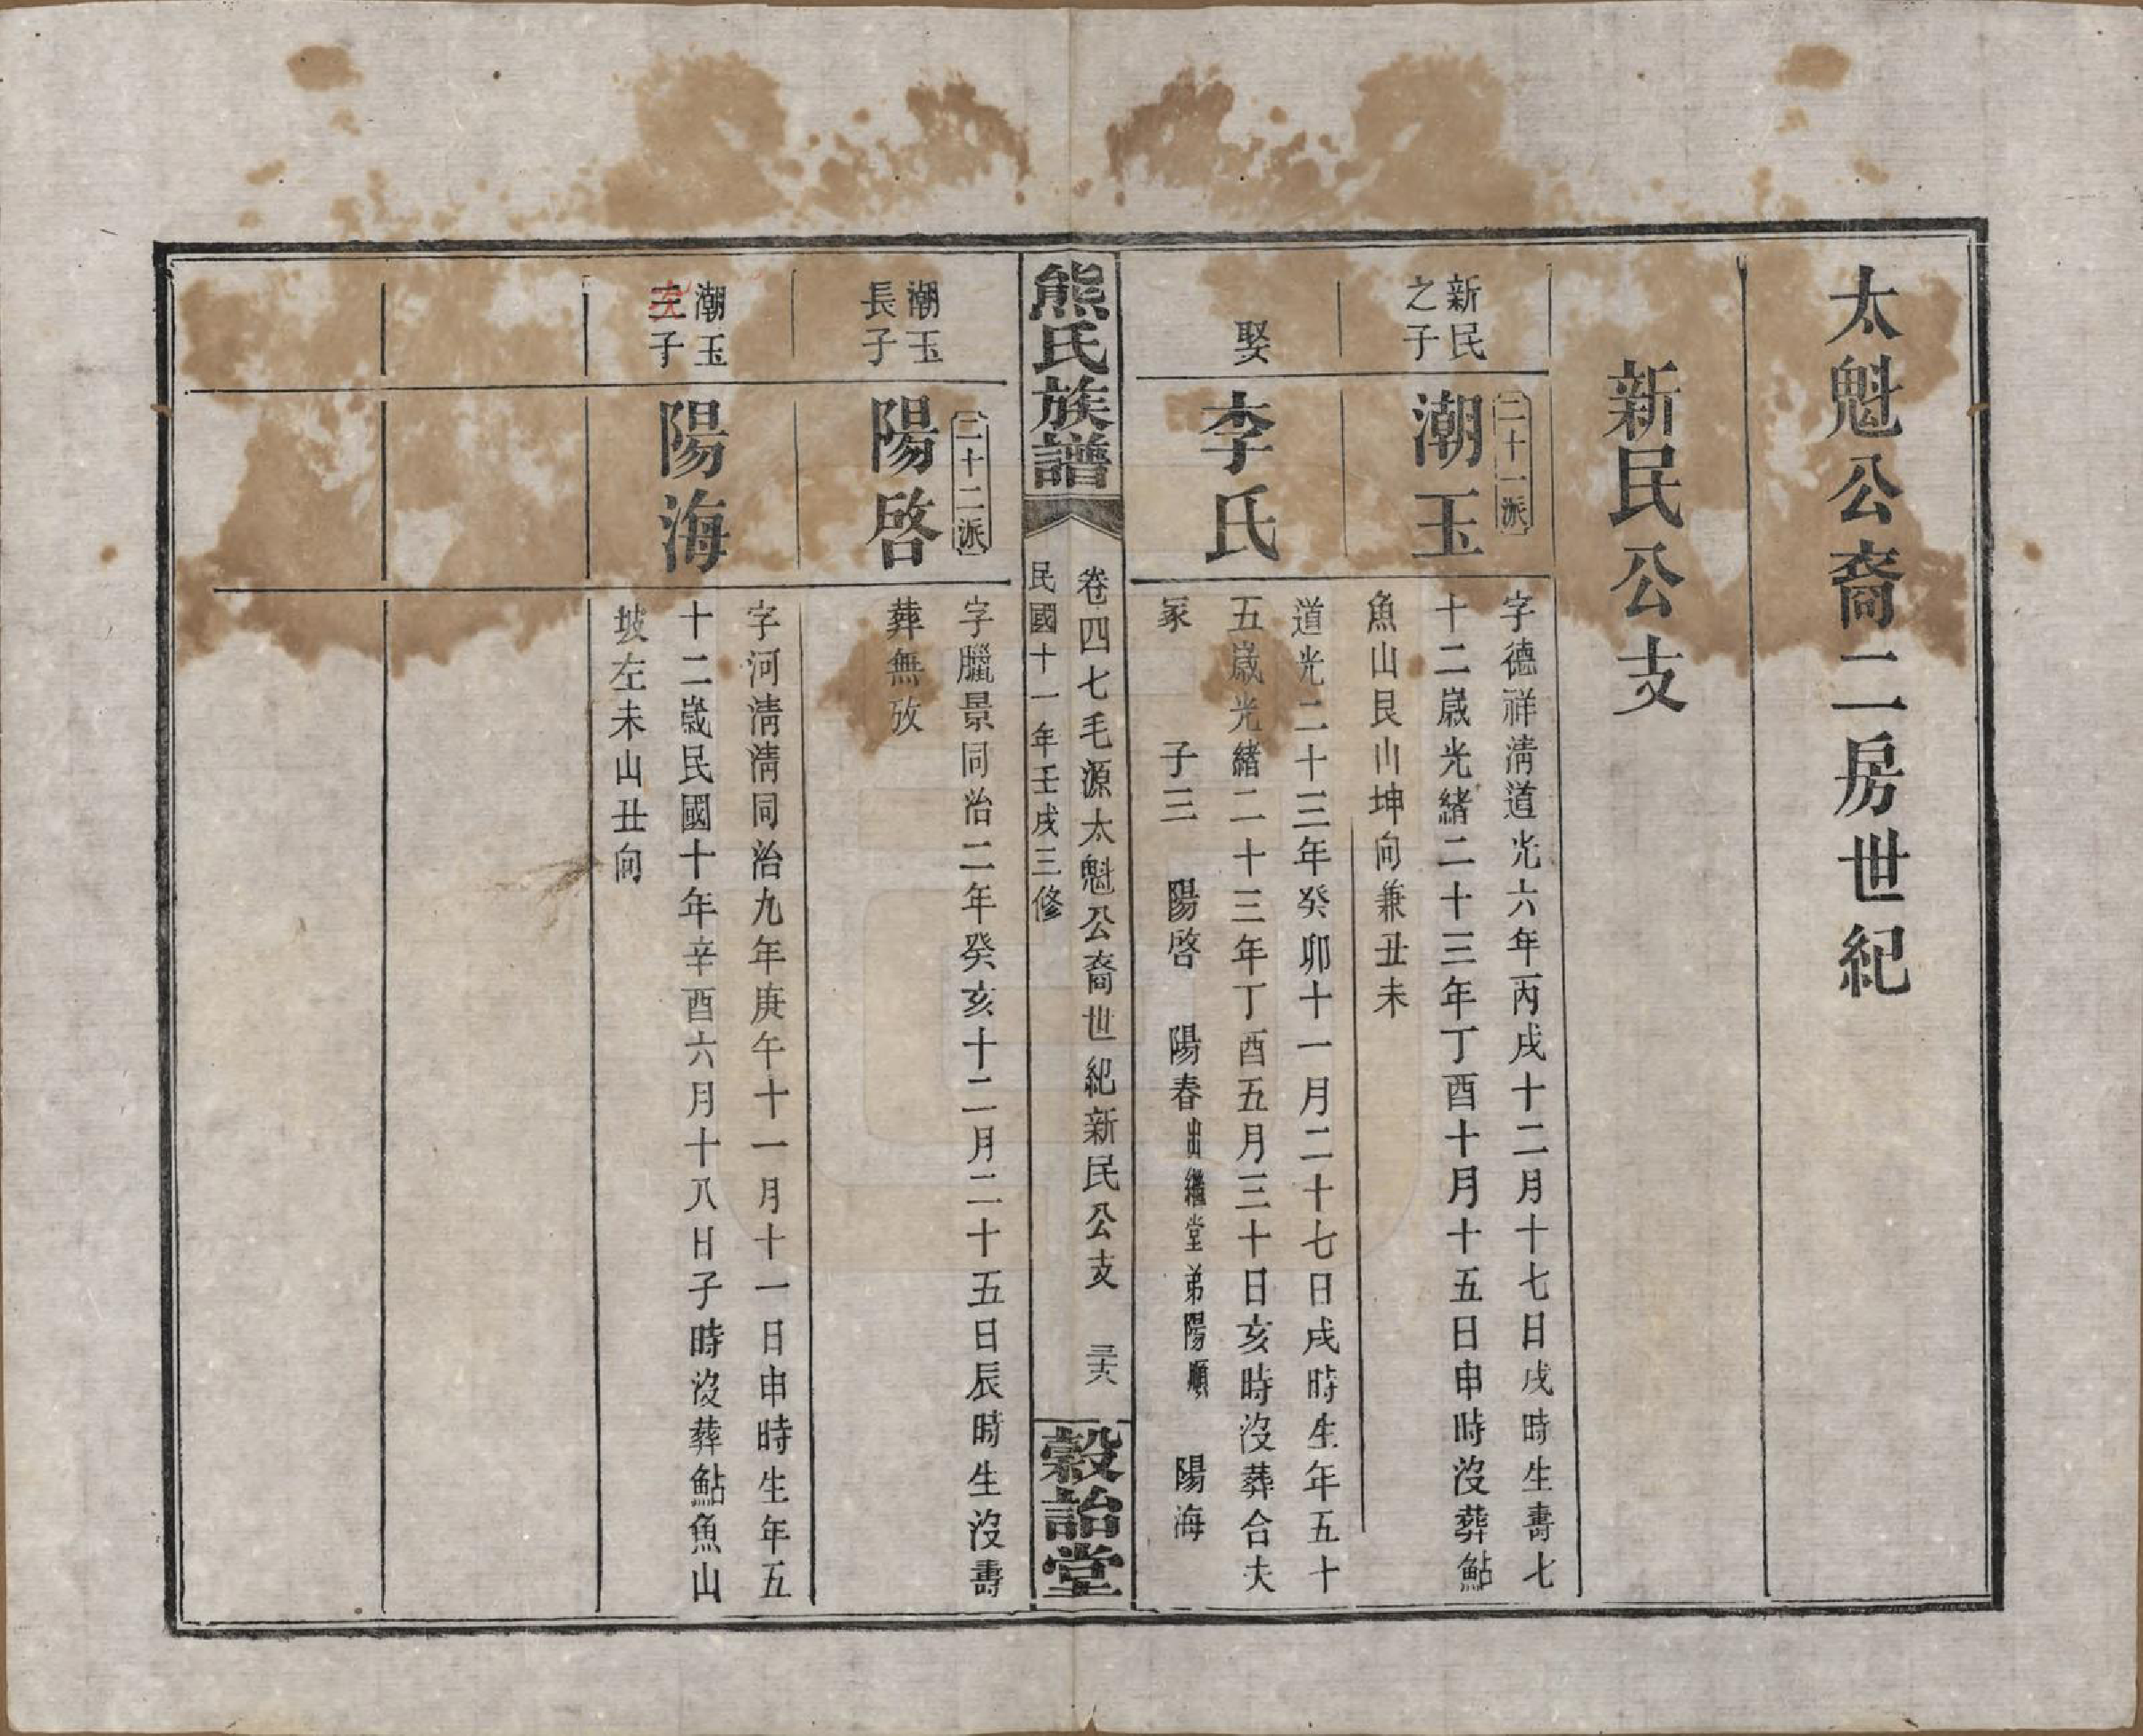 太魁公裔二房世紀
新民公支
新民
之子
二十一派
潮玉
字德祥淸道光六年丙戌十二月十七日戌時生壽七
十二歲光緒二十三年丁酉十月十五日申時沒葬鮎
魚山艮山坤向兼丑未
娶
李氏
道光二十三年癸卯十一月二十七日戌時生年五十
五歲光緒二十三年丁酉五月三十日亥時沒葬合夫
冢 子三 陽啓 陽春出繼堂弟陽順 陽海
熊氏族譜
卷四七毛源太魁公裔世紀新民公支
民國十一年壬戌三修
穀詒堂
潮玉
長子
二十二派
陽啓
字臘景同治二年癸亥十二月二十五日辰時生沒壽
葬無攷
潮玉
三子
陽海
字河淸淸同治九年庚午十一月十一日申時生年五
十二歲民國十年辛酉六月十八日子時沒葬鮎魚山
坡左未山丑向